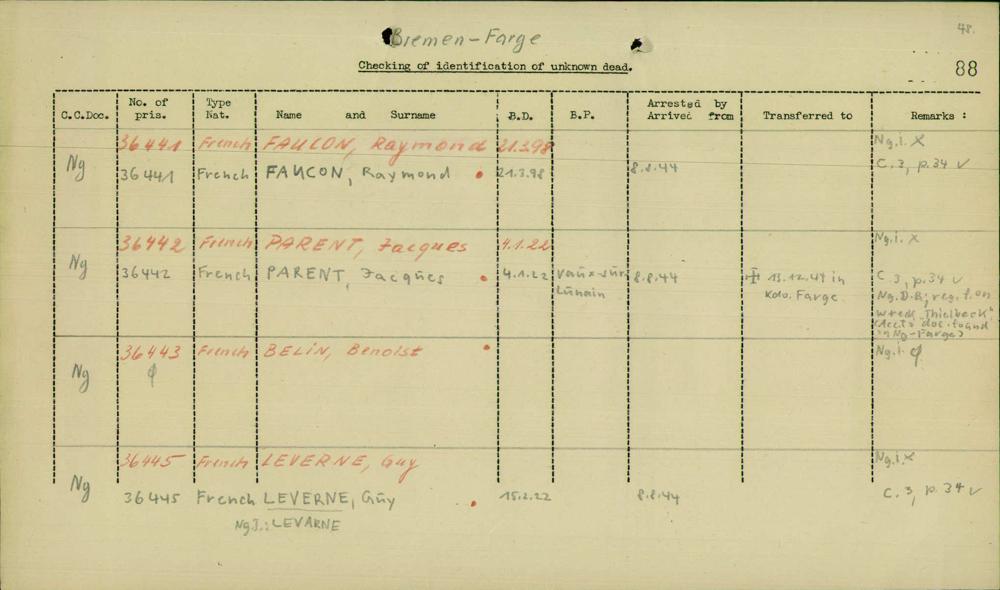 48.
Bremen-Farge
Checking of identification of unknown dead.
88
C.C.Doc.
No. of pris.
Type Nat.
Name and Surname
B.D.
B.P.
Arrested by
Arrived from
Transferred to
Remarks :
36441 French FAUCON, Raymond 21.3.98 Ng.i. X
Ng 36441 French FAUCON, Raymond 21.3.98 8.8.44 C.3, p.34 v
36442 French PARENT, Jacques 4.1.22 Ng.i. X
Ng 36442 French PARENT, Jacqŭes 4.1.22 Vaŭx-sŭr 8.8.44 13.12.44 in C.3, p.34 v
Lŭnain Kdo. Farge Ng.D.B; reg. f. on
wreck "Thielbeck"
doc. found
Ng-Farge)
36443 French BELIN, Benoist Ng.i. φ
Ng φ
36445 French LEVERNE, Guy Ng.i. X
Ng 36445 French LEVERNE, Gŭy 15.2.22 8.8.44 C.3, p.34 v
Ng J.: LEVARNE